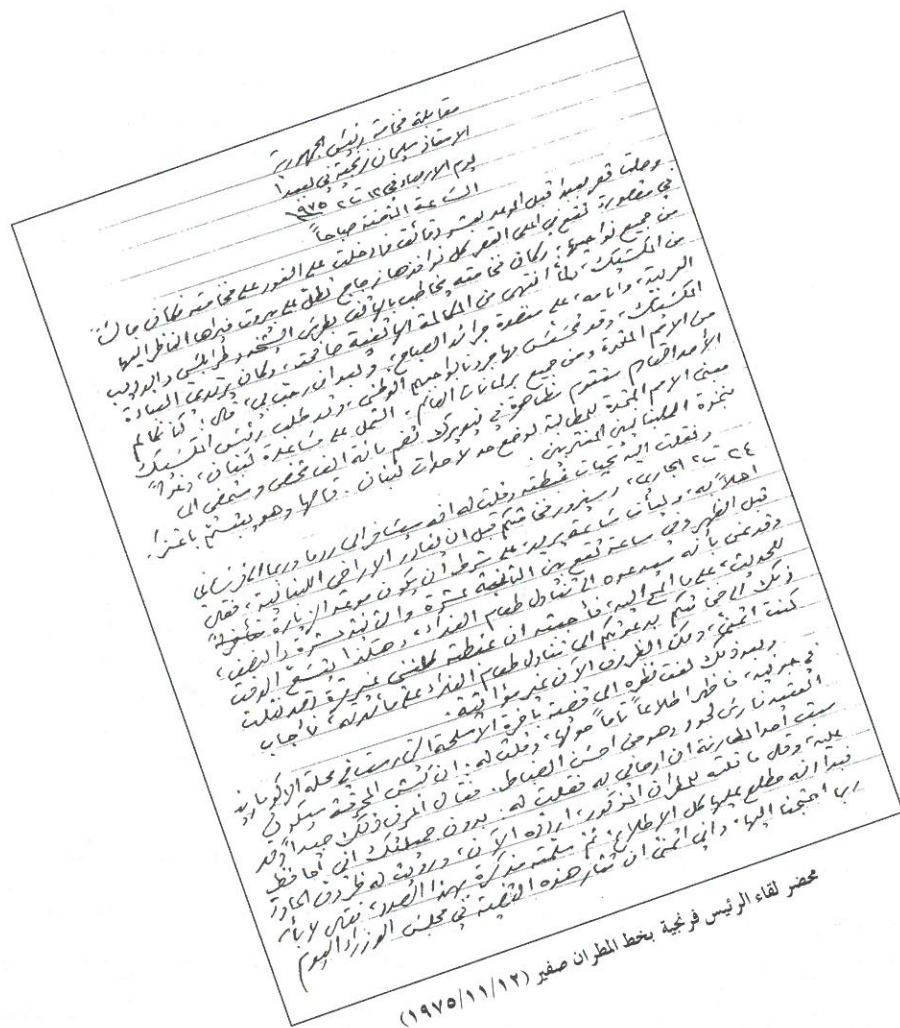 مقابلة فخامة رئيس الجمهورية
الاستاذ سليمان فرنجية في بعبدا
يوم الاربعاء في ١٢ ت٢ ١٩٧٥
الساعة الثامنة صباحاً
وصلت قصر بعبدا قبل الموعد بعشر دقائق فأدخلت على الفور على فخامته فكان جالساً
في مقصورة تقع في اعلى القصر كل نوافذها زجاج تطل على بيروت فيراها الناظر اليها
من جميع نواحيها. وكان فخامته يخاطب بالتلفن بطرس الشيخ
من المكسيك، ولما انتهى من المكالمة التلفنية صافحته، وكان يرتدي العباءة
العربية، وامامه على منضدة جرائد الصباح، وبعد ان رحب بي، قال: كنا نكالم
المكسيك، وقد تحمس مهاجرونا بواجبهم الوطني، وقد طلب رئيس المكسيك
من الامم المتحدة ومن جميع برلمانات العالم، العمل على مساعدة لبنان، وغداً
الأحد القادم ستقوم تظاهرة في نيويورك تضم مائة الف شخص وستمضي الى
مبنى الامم المتحدة للمطالبة بوضع حد لأحداث لبنان. قالها وهو يبتسم باعتزاز
بنخوة اللبنانيين المغتربين.
ونقلت اليه تحيات غبطته وقلت له انه سيسافر الى روما وربما الى فرنسا في
٢٤ ت٢ الجاري، وسيزور فخامتكم قبل ان يغادر الاراضي اللبنانية، فقال:
اهلاً به، وليأت ساعة يريد، على شرط ان يكون موعد الزيارة
قبل الظهر وفي ساعة تقع بين الثانية عشرة والثانية عشرة والنصف،
وقد عنى بأنه سيدعوه الى تناول طعام الغداء، وهكذا يتسع الوقت
للحديث، على ما المح اليه، فأجبته ان غبطته كلفني غير مرة
ذلك الى ان يدعوكم الى تناول طعام الغداء على مائدته، فأجاب
كنت اتمنى، ولكن الظروف الآن غير مؤاتية.
وبعد ذلك لفت نظره الى قضية باخرة الاسلحة التي رست في محلة الاكوامارينا
في جونيه، فأظهر اطلاعاً تاماً حولها، وقلت له: ان كبش المحرقة سيكون
العقيد فارس لحود وهو من احسن الضباط. فقال اعرف ذلك جيداً وقد
سبق أحد المطارنة ان اوصاني به فقلت له: بدون جميلتك اني احافظ
عليه، وقل ما قلته للمطران المذكور، اردده الآن، ورويت له ظروف الحادث
فبدا انه مطلع عليها كل الاطلاع، ثم سلمته مذكرة بهذا الصدد، فقال لا بأس
ربما احتجنا اليها، واني اتمنى ان تثار هذه القضية في مجلس الوزراء اليوم
محضر لقاء الرئيس فرنجية بخط المطران صفير (١٩٧٥/١١/١٢)